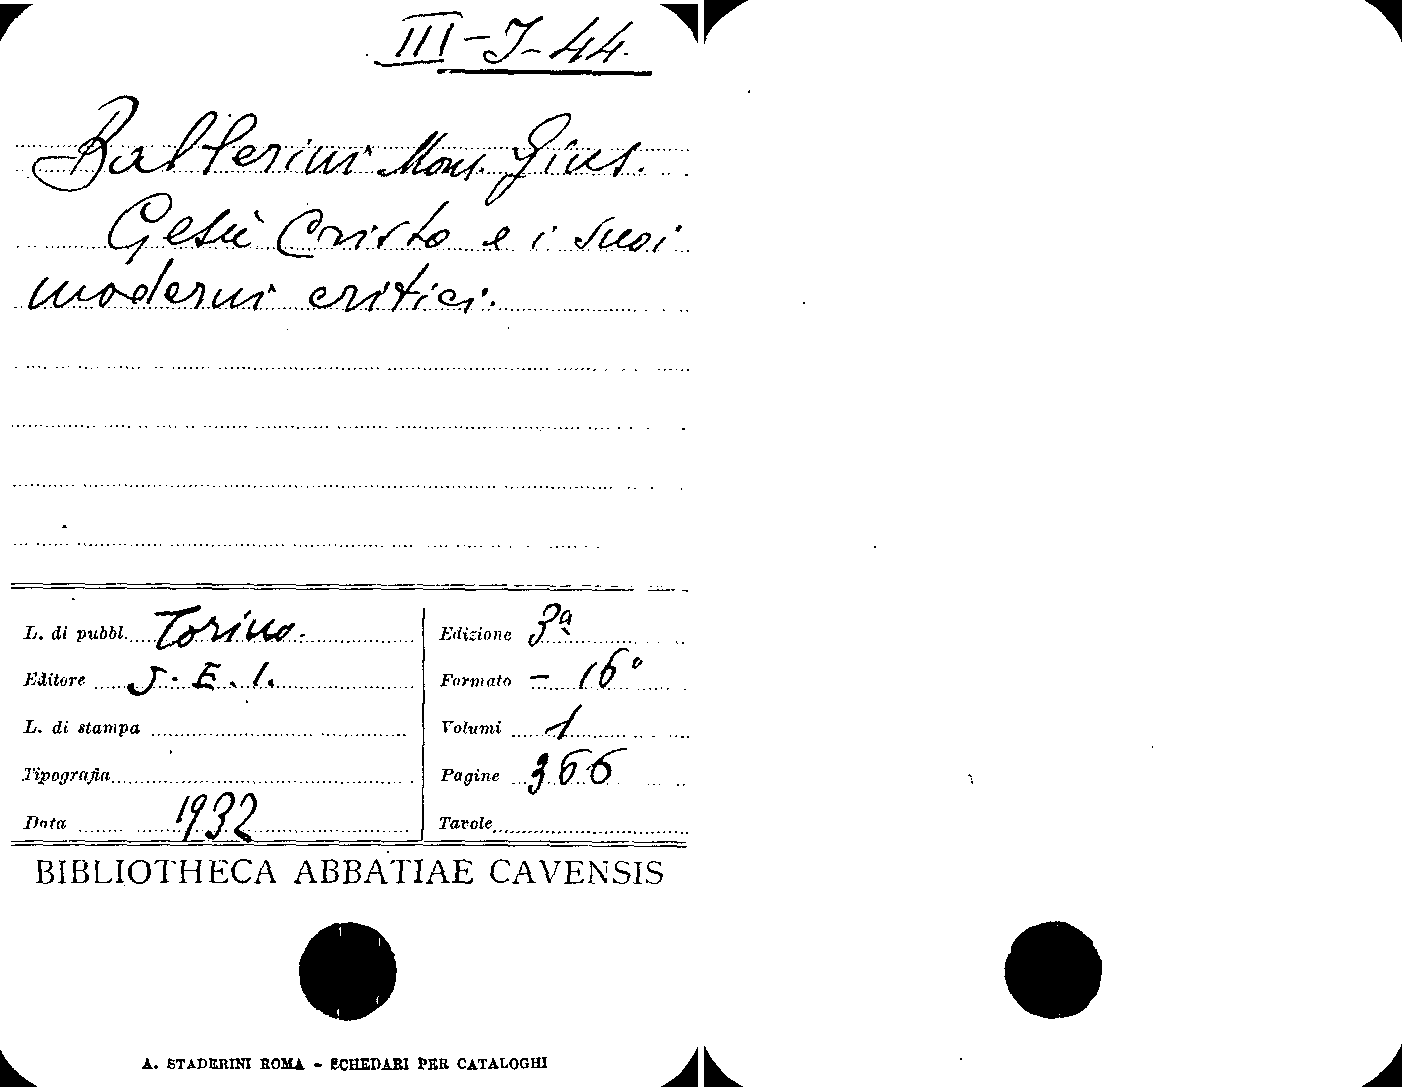 III-J-44.
Ballerini Mons. Gius.
Gesù Cristo e i suoi
moderni critici.
L. di pubbl. Torino.
Editore S. E. I.
L. di stampa
Tipografia
Data 1932
Edizione 3ª
Formato - 16°
Volumi 1
Pagine 366
Tavole
BIBLIOTHECA ABBATIAE CAVENSIS
A. STADERINI ROMA - SCHEDARI PER CATALOGHI